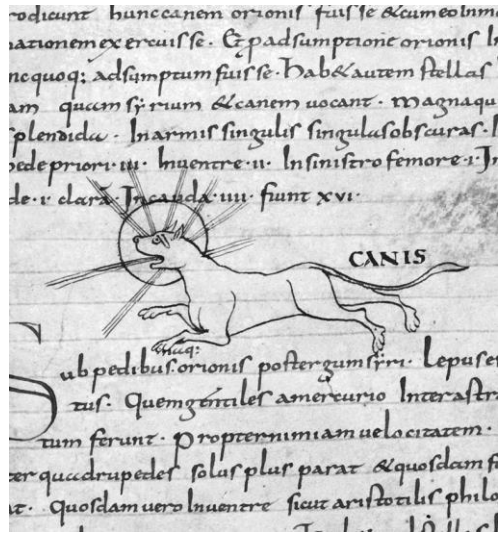 rodicunt hunccanem orionis fuisse &cumeoinim
nationem exercuisse · Et padsumptione orionis In
ncquoq; adsumptum fuisse · hab&autem stellas
am quam syrium &canem uocant · magnaqu
splendida · Inarmis singulis singulas obscuras · I
pede priori · iii · Inuentre · ii · Insinistro femore · i · In
de · i · clara · Incauda · iiii · fiunt xvi ·
CANIS
nuq;
Sub pedibus orionis postergum syri · Lepus et
tus · Quem gentiles amercurio Interastra
tum ferunt · Propternimiam uelocitatem ·
ter quadrupedes solus plus parat &quosdam f
at · Quosdam uero Inuentre sicut aristotilis philo